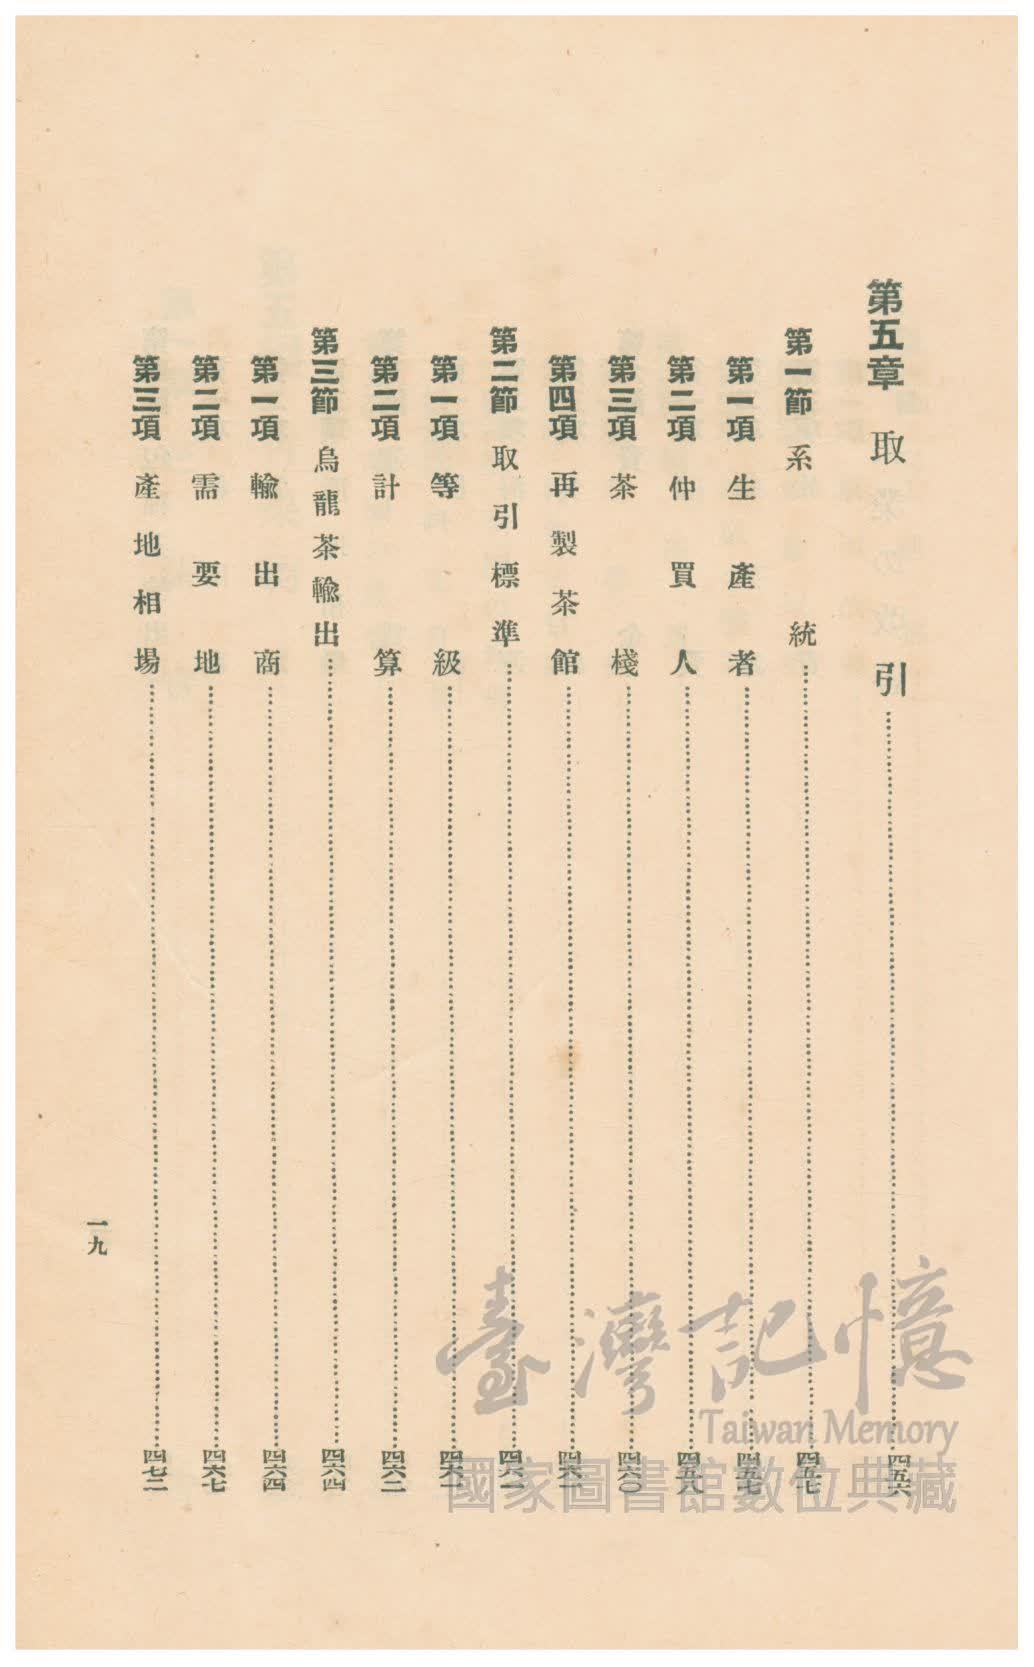 第五章 取引……四五六
第一節 系統……四五七
第一項 生產者……四五七
第二項 仲買人……四五八
第三項 茶棧……四六〇
第四項 再製茶館……四六一
第二節 取引標準……四六一
第一項 等級……四六一
第二項 計算……四六二
第三節 烏龍茶輸出……四六四
第一項 輸出商……四六四
第二項 需要地……四六七
第三項 產地相場……四七二
一九
臺灣記憶
Taiwan Memory
國家圖書館數位典藏